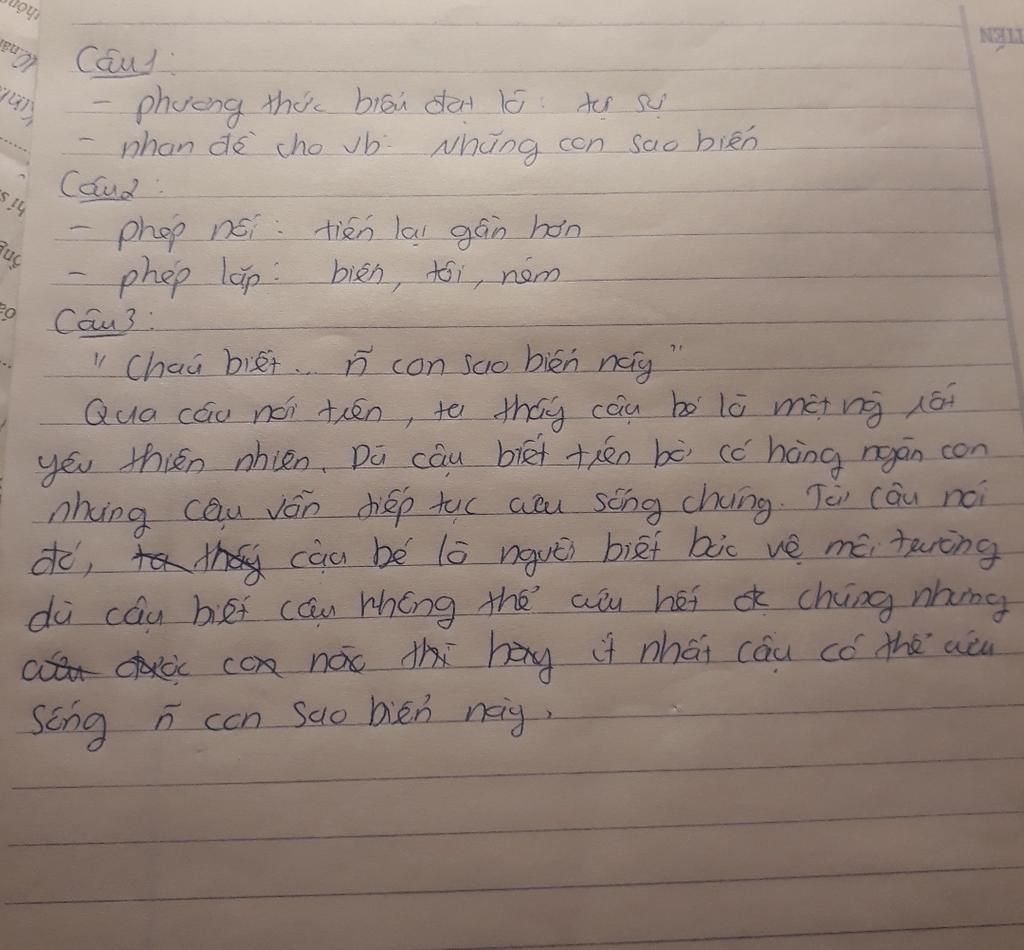 TIẾN
Câu1:
- phương thức biểu đạt là: tự sự
- nhan đề cho vb: Những con sao biển
Câu2:
- phép nối: tiến lại gần hơn
- phép lặp: biển, tôi, ném
Câu3:
" Cháu biết... ñ con sao biển này"
Qua câu nói trên, ta thấy cậu bé là một ng̀ rất
yêu thiên nhiên. Dù cậu biết trên bờ có hàng ngàn con
nhưng cậu vẫn tiếp tục cứu sống chúng. Từ câu nói
đó, ta thấy cậu bé là người biết bảo vệ môi trường
dù cậu biết cậu không thể cứu hết đc chúng nhưng
cứu được con nào thì hay ít nhất cậu có thể cứu
sống ñ con sao biển này.